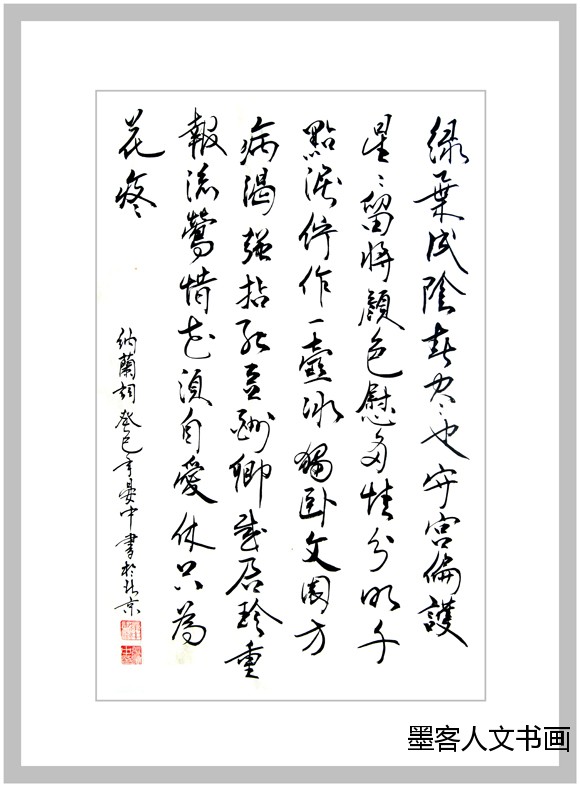 緑葉成陰春尽也守宮偏護
星〻留將顏色慰多情分明千
點淚停作一壺冰獨臥文園方
病渴強拈紅豆酬卿感君珍重
報流鶯惜花須自愛休只為
花疼
納蘭詞癸巳年晏中書於北京
墨客人文书画